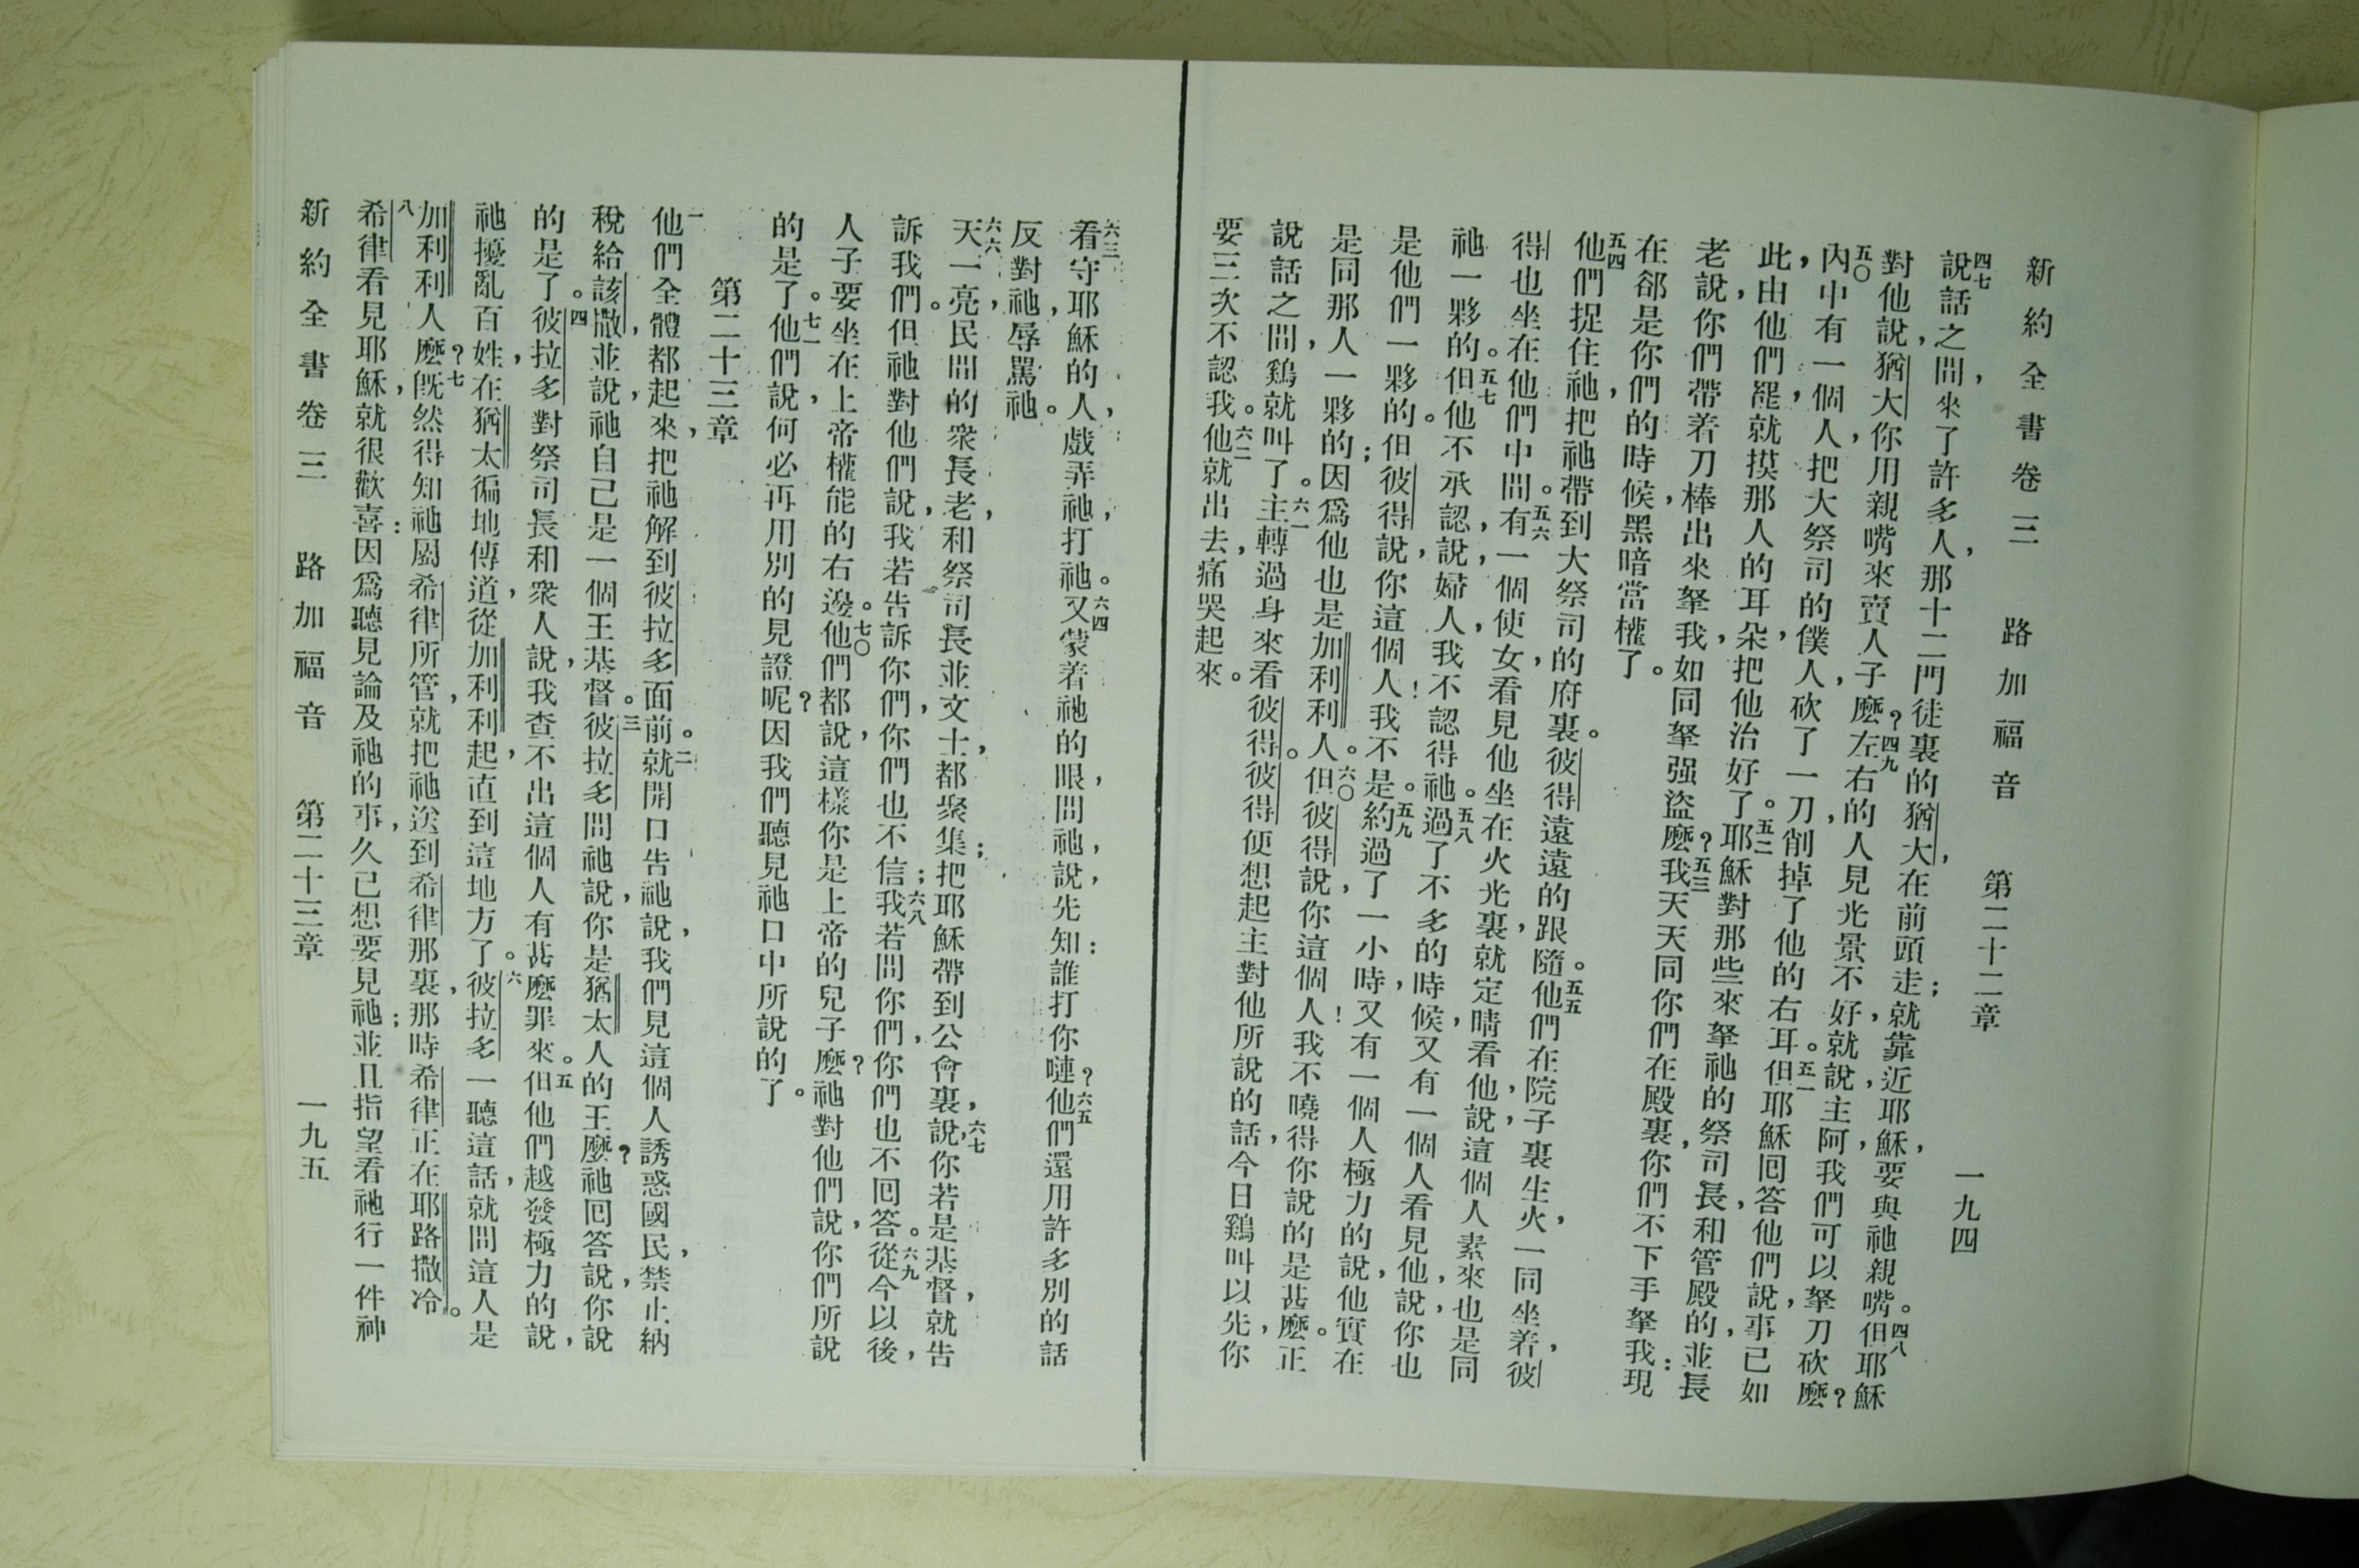 新約全書卷三　路加福音　第二十二章　一九四
四七說話之間，來了許多人，那十二門徒裏的猶大，在前頭走；就靠近耶穌，要與祂親嘴。四八但耶穌
對他說，猶大你用親嘴來賣人子麼？四九左右的人，見光景不好，就說，主阿，我們可以拏刀砍麼？
五〇內中有一個人，把大祭司的僕人，砍了一刀，削掉了他的右耳。五一但耶穌回答他們說，事已如
此，由他們罷，就摸那人的耳朵，把他治好了。五二耶穌對那些來拏祂的祭司長，和管殿的，並長
老說，你們帶着刀棒出來拏我，如同拏强盜麼？五三我天天同你們在殿裏，你們不下手拏我：現
在郤是你們的時候，黑暗當權了。
五四他們捉住祂，把祂帶到大祭司的府裏。彼得遠遠的跟隨。五五他們在院子裏生火，一同坐着，彼
得也坐在他們中間。五六有一個使女，看見他坐在火光裏，就定睛看他，說，這個人素來也是同
祂一夥的。五七但他不承認，說，婦人，我不認得祂。五八過了不多的時候，又有一個人看見他，說，你也
是他們一夥的。但彼得說，你這個人！我不是。五九約過了一小時，又有一個人極力的說，他實在
是同那人一夥的；因爲他也是加利利人。六〇但彼得說，你這個人！我不曉得你說的是甚麼。正
說話之間，鷄就叫了。六一主轉過身來看彼得。彼得便想起主對他所說的話，今日鷄叫以先，你
要三次不認我。六二他就出去，痛哭起來。
六三看守耶穌的人，戲弄祂，打祂。六四又蒙着祂的眼，問祂，說，先知：誰打你嗹？六五他們還用許多別的話
反對祂，辱罵祂。
六六天一亮，民間的衆長老，和祭司長並文士，都聚集；把耶穌帶到公會裏，六七說，你若是基督，就告
訴我們。但祂對他們說，我若告訴你們，你們也不信；六八我若問你們，你們也不回答。六九從今以後，
人子要坐在上帝權能的右邊。七〇他們都說，這樣你是上帝的兒子麼？祂對他們說，你們所說
的是了。七一他們說，何必再用別的見證呢？因我們聽見祂口中所說的了。
第二十三章
一他們全體都起來，把祂解到彼拉多面前。二就開口告祂說，我們見這個人誘惑國民，禁止納
稅給該撒，並說，祂自己是一個王基督。三彼拉多問祂說，你是猶太人的王麼？祂回答說，你說
的是了。四彼拉多對祭司長和衆人說，我查不出這個人有甚麼罪來。五但他們越發極力的說，
祂擾亂百姓，在猶太徧地傳道，從加利利起，直到這地方了。六彼拉多一聽這話，就問這人是
加利利人麼？七旣然得知祂屬希律所管，就把祂送到希律那裏，那時希律正在耶路撒冷。
八希律看見耶穌，就很歡喜：因爲聽見論及祂的事，久已想要見祂；並且指望看祂行一件神
新約全書卷三　路加福音　第二十三章　一九五